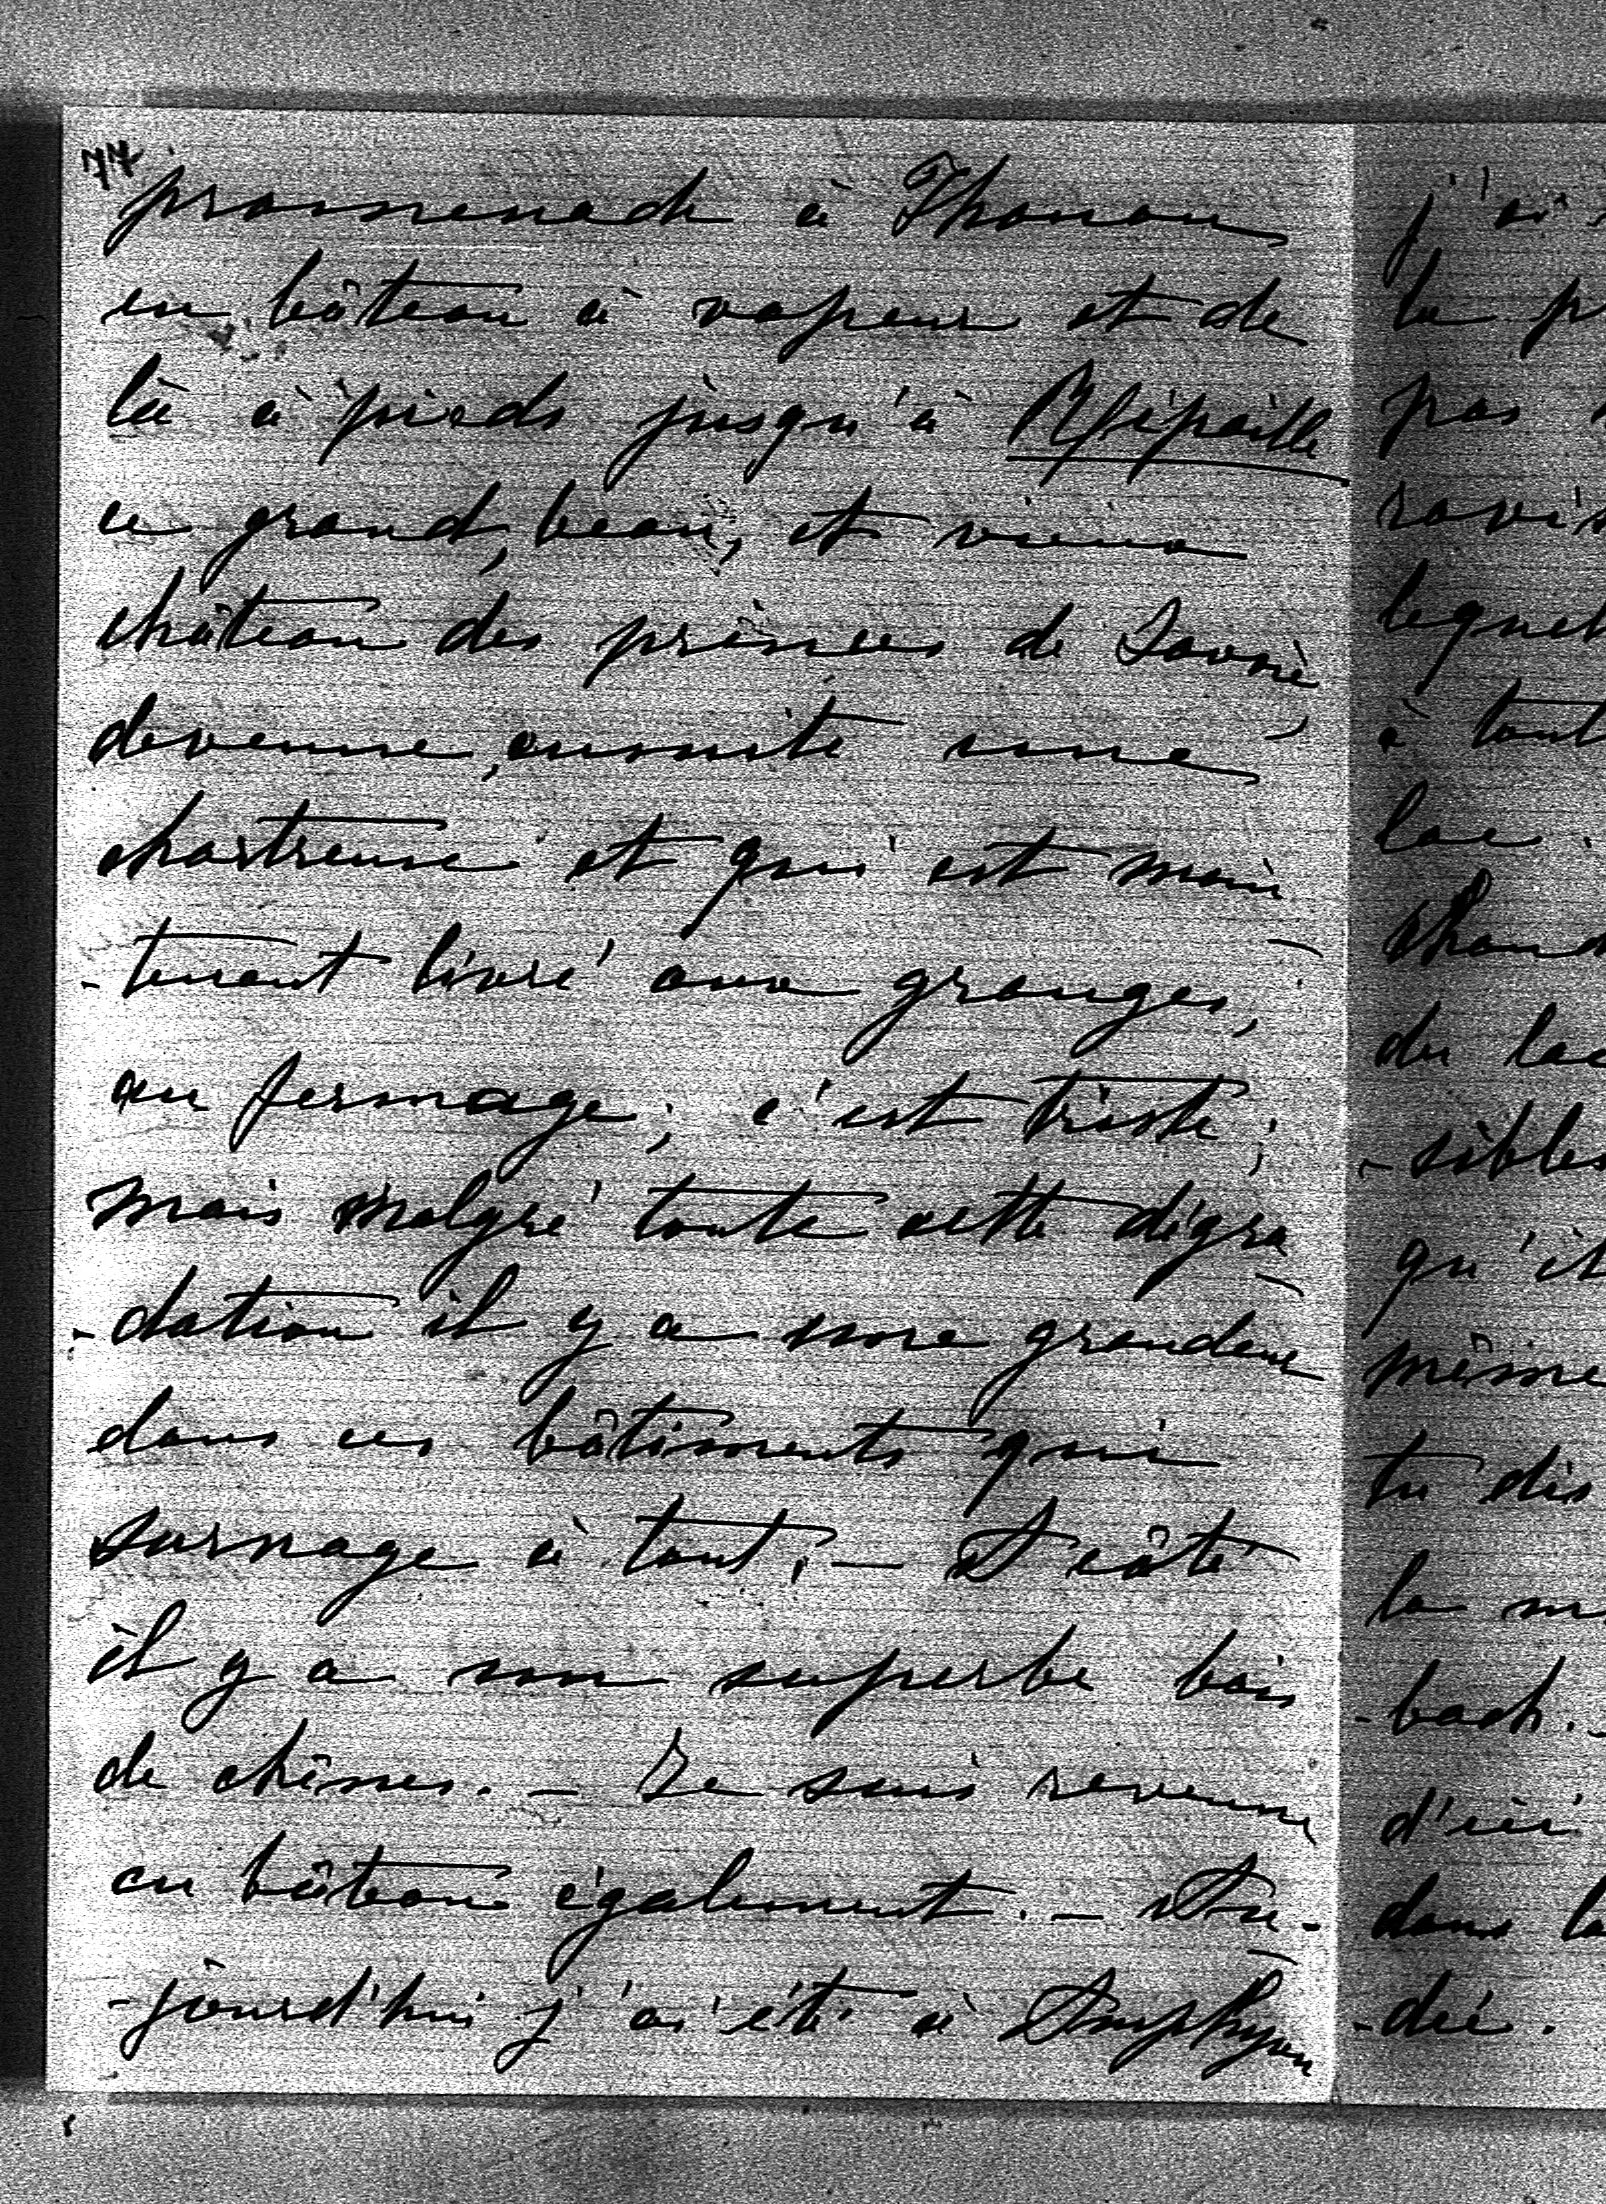 77
promenade à Thonon
en bâteau à vapeur et de
là à pieds jusqu'à Rhipaille
ce grand, beau, et vieux
château des princes de Savoie
devenue, ensuite une
chartreuse et qui est main
-tenant livré aux granges,
au fermage; c'est triste;
mais malgré toute cette dégra
-dation il y a une grandeur
dans ces bâtiments qui
surnage à tout; — A côté
il y a un superbe bois
de chênes. — Je suis revenue
en bâteau également. — Au-
-jourd'hui j'ai été à Amphyon
j'ai
la p
pas
ravis
lequel
à tout
lac.
du lac
-sibles
qu'il
même
tu dis
la m
-bach. -
d'ici
dans la
-dée.